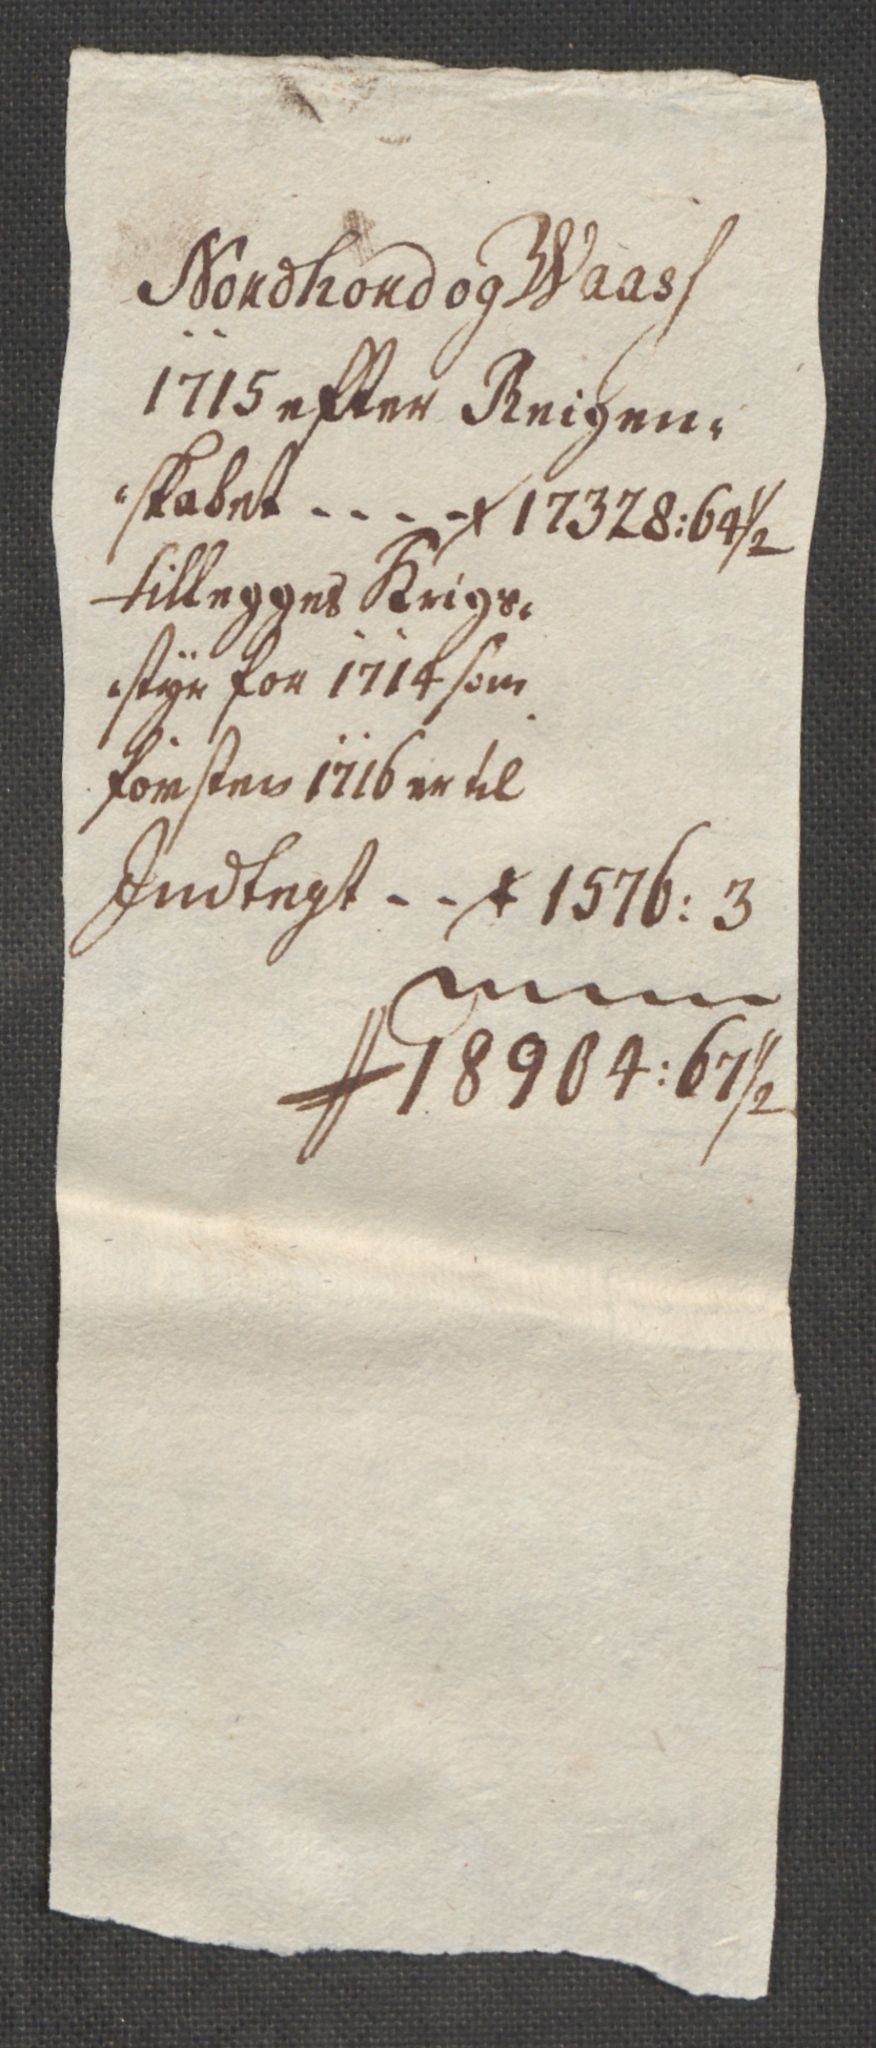 Nordhord og Waass
1715 efter Reigen-
-skabet - - - - 17328: 64 1/2
tillegges Krigs-
-styr for 1714 som
førsten 1716 er til
Indtegt - - 1576: 3
18904: 67 1/2